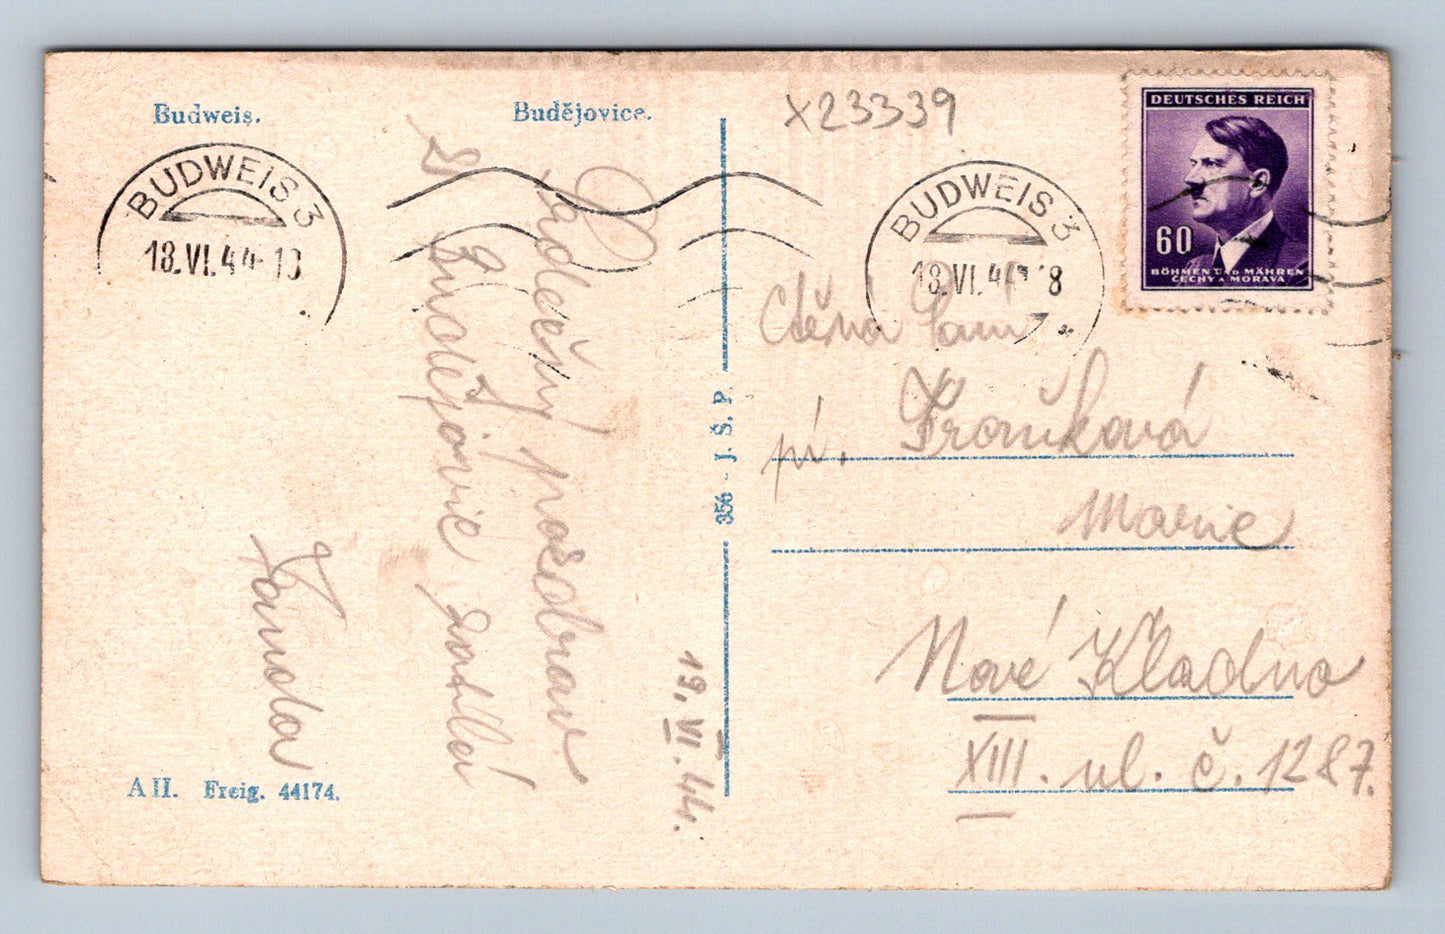 Budweis.
Budějovice.
X23339
DEUTSCHES REICH
60
BÖHMEN UND MÄHREN
ČECHY A MORAVA
BUDWEIS 3
18.VI.44-18
BUDWEIS 3
18.VI.44 18
Srdečný pozdrav
z Budějovic zasílá
Fanda
19. VI. 44.
356 - J. Š. P.
Ctěná Paní
pí.
Marie
Nové Kladno
XIII. ul. č. 1287.
A II. Freig. 44174.